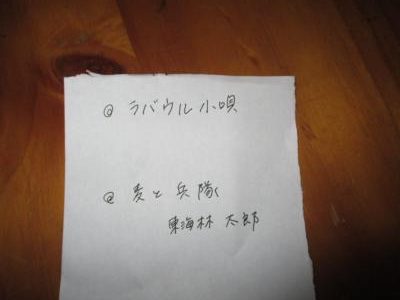 ◎ ラバウル小唄
◎ 麦と兵隊
東海林 太郎